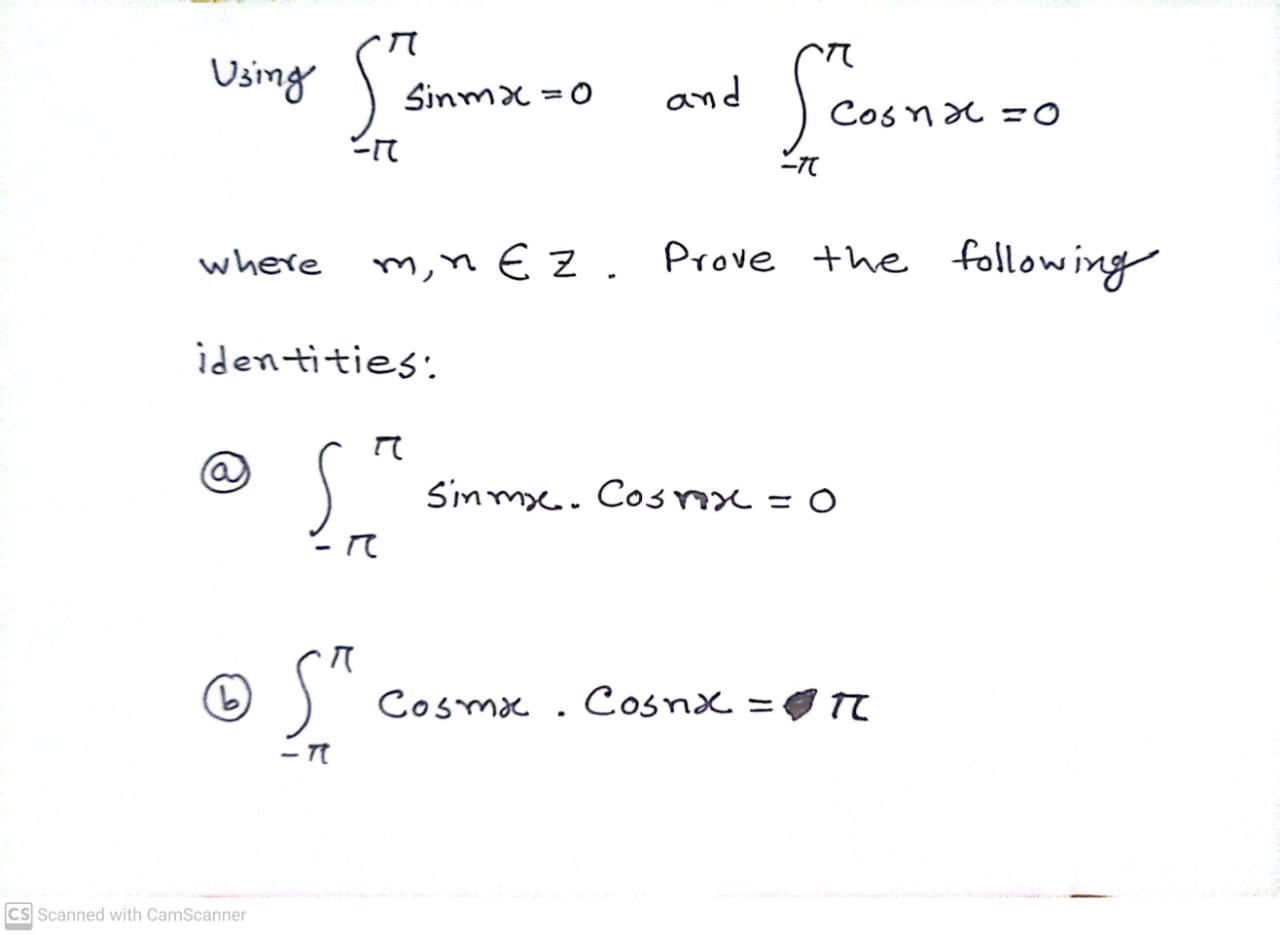 Using ∫_{-π}^{π} sinmx = 0 and ∫_{-π}^{π} cosnx = 0
where m,n ∈ Z. Prove the following
identities:
ⓐ ∫_{-π}^{π} sinmx. Cosnx = 0
ⓑ ∫_{-π}^{π} Cosmx . Cosnx = π
CS Scanned with CamScanner